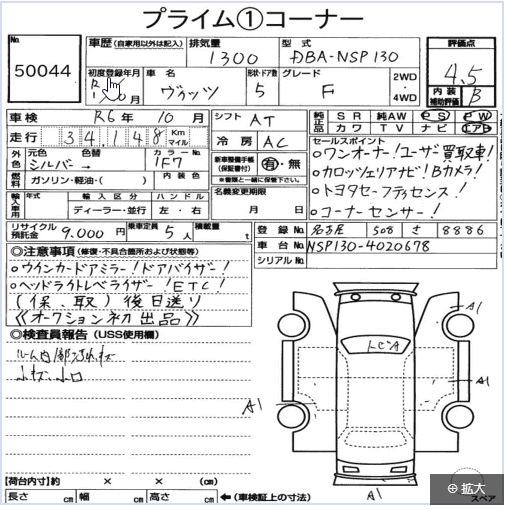 プライム①コーナー
No.
50044
車歴(自家用以外は記入)
排気量
1300
型式
DBA-NSP130
評価点
4.5
内装
補助評価
B
初度登録年月
月
車名
ヴィッツ
形状・ドア数
5
グレード
F
2WD
・
4WD
車検
R6年 10月
シフト
AT
純正品
SR 純AW PS PW
カワ TV ナビ エアB
走行
34,148
Km
マイル
冷房
AC
セールスポイント
○ワンオーナー!ユーザー買取車!
○カロッツェリアナビ!Bカメラ!
○トヨタセーフティセンス!
○コーナーセンサー!
外色
元色
色替
シルバー→
カラーNo.
1F7
新車整備手帳
(保証書付)
有・無
※書類と一緒に保管して下さい。
燃料
ガソリン・軽油・( )
内装色
名義変更期限
月 日
輸入車用
年式
輸入区分
ハンドル
ディーラー・並行
左・右
リサイクル
預託金
9,000円
乗車定員
5人
積載量
t
登録No.
名古屋 508 さ 8886
車台No.
NSP130-4020678
シリアルNo.
◎注意事項(修復・不具合箇所および状態等)
○ウインカードアミラー!ドアバイザー!
○ヘッドライトレベライザー!ETC!
(保、取)後日送り
《オークション初出品》
◎検査員報告(USS使用欄)
ルーム内
小キズ、小凹
A1
A1
A1
A1
【荷台内寸】約 × × (cm)
長さ cm 幅 cm 高さ cm
←(車検証上の寸法)
スペア
拡大